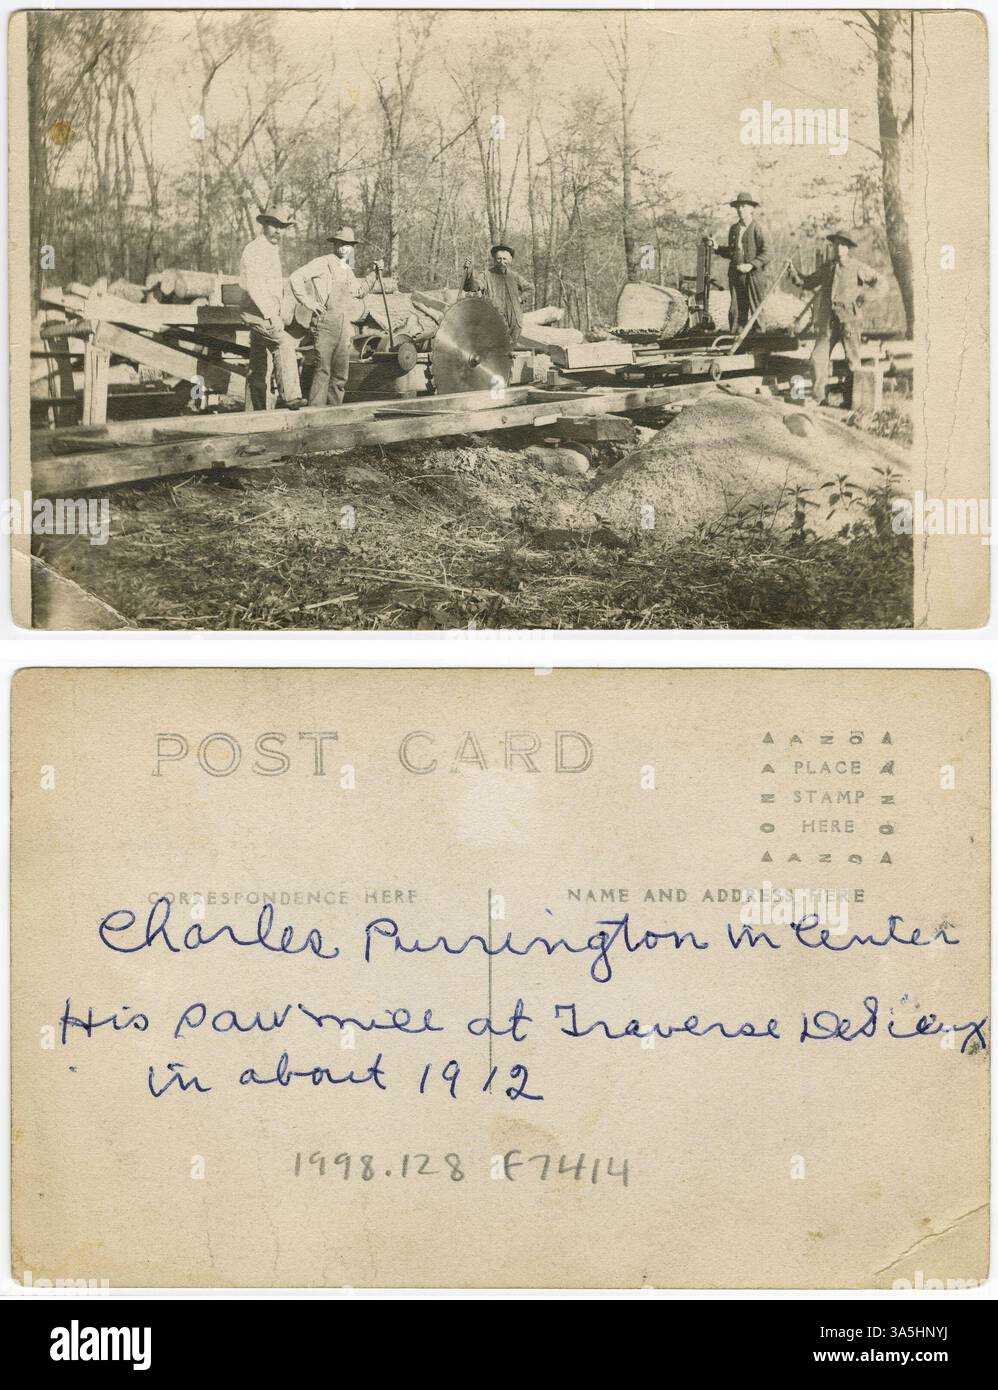 POST CARD
AZO
PLACE
STAMP
HERE
AZO
CORRESPONDENCE HERE
NAME AND ADDRESS HERE
Charles Purrington in Center
His Sawmill at Traverse DeSioux
in about 1912
1998.128 F7414
alamy
Image ID: 3A5HNYJ
www.alamy.com